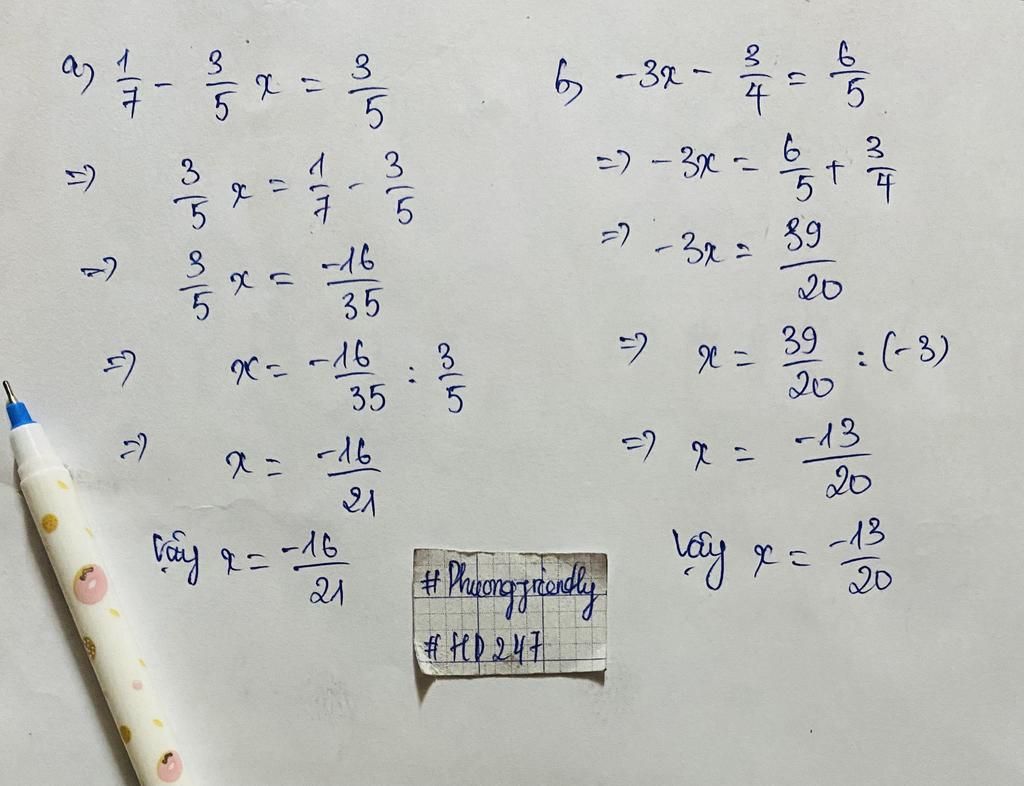 a) 1/7 - 3/5 x = 3/5
=> 3/5 x = 1/7 - 3/5
=> 3/5 x = -16/35
=> x = -16/35 : 3/5
=> x = -16/21
Vậy x = -16/21
b) -3x - 3/4 = 6/5
=> -3x = 6/5 + 3/4
=> -3x = 39/20
=> x = 39/20 : (-3)
=> x = -13/20
Vậy x = -13/20
#Phuongfriendly
#HD247